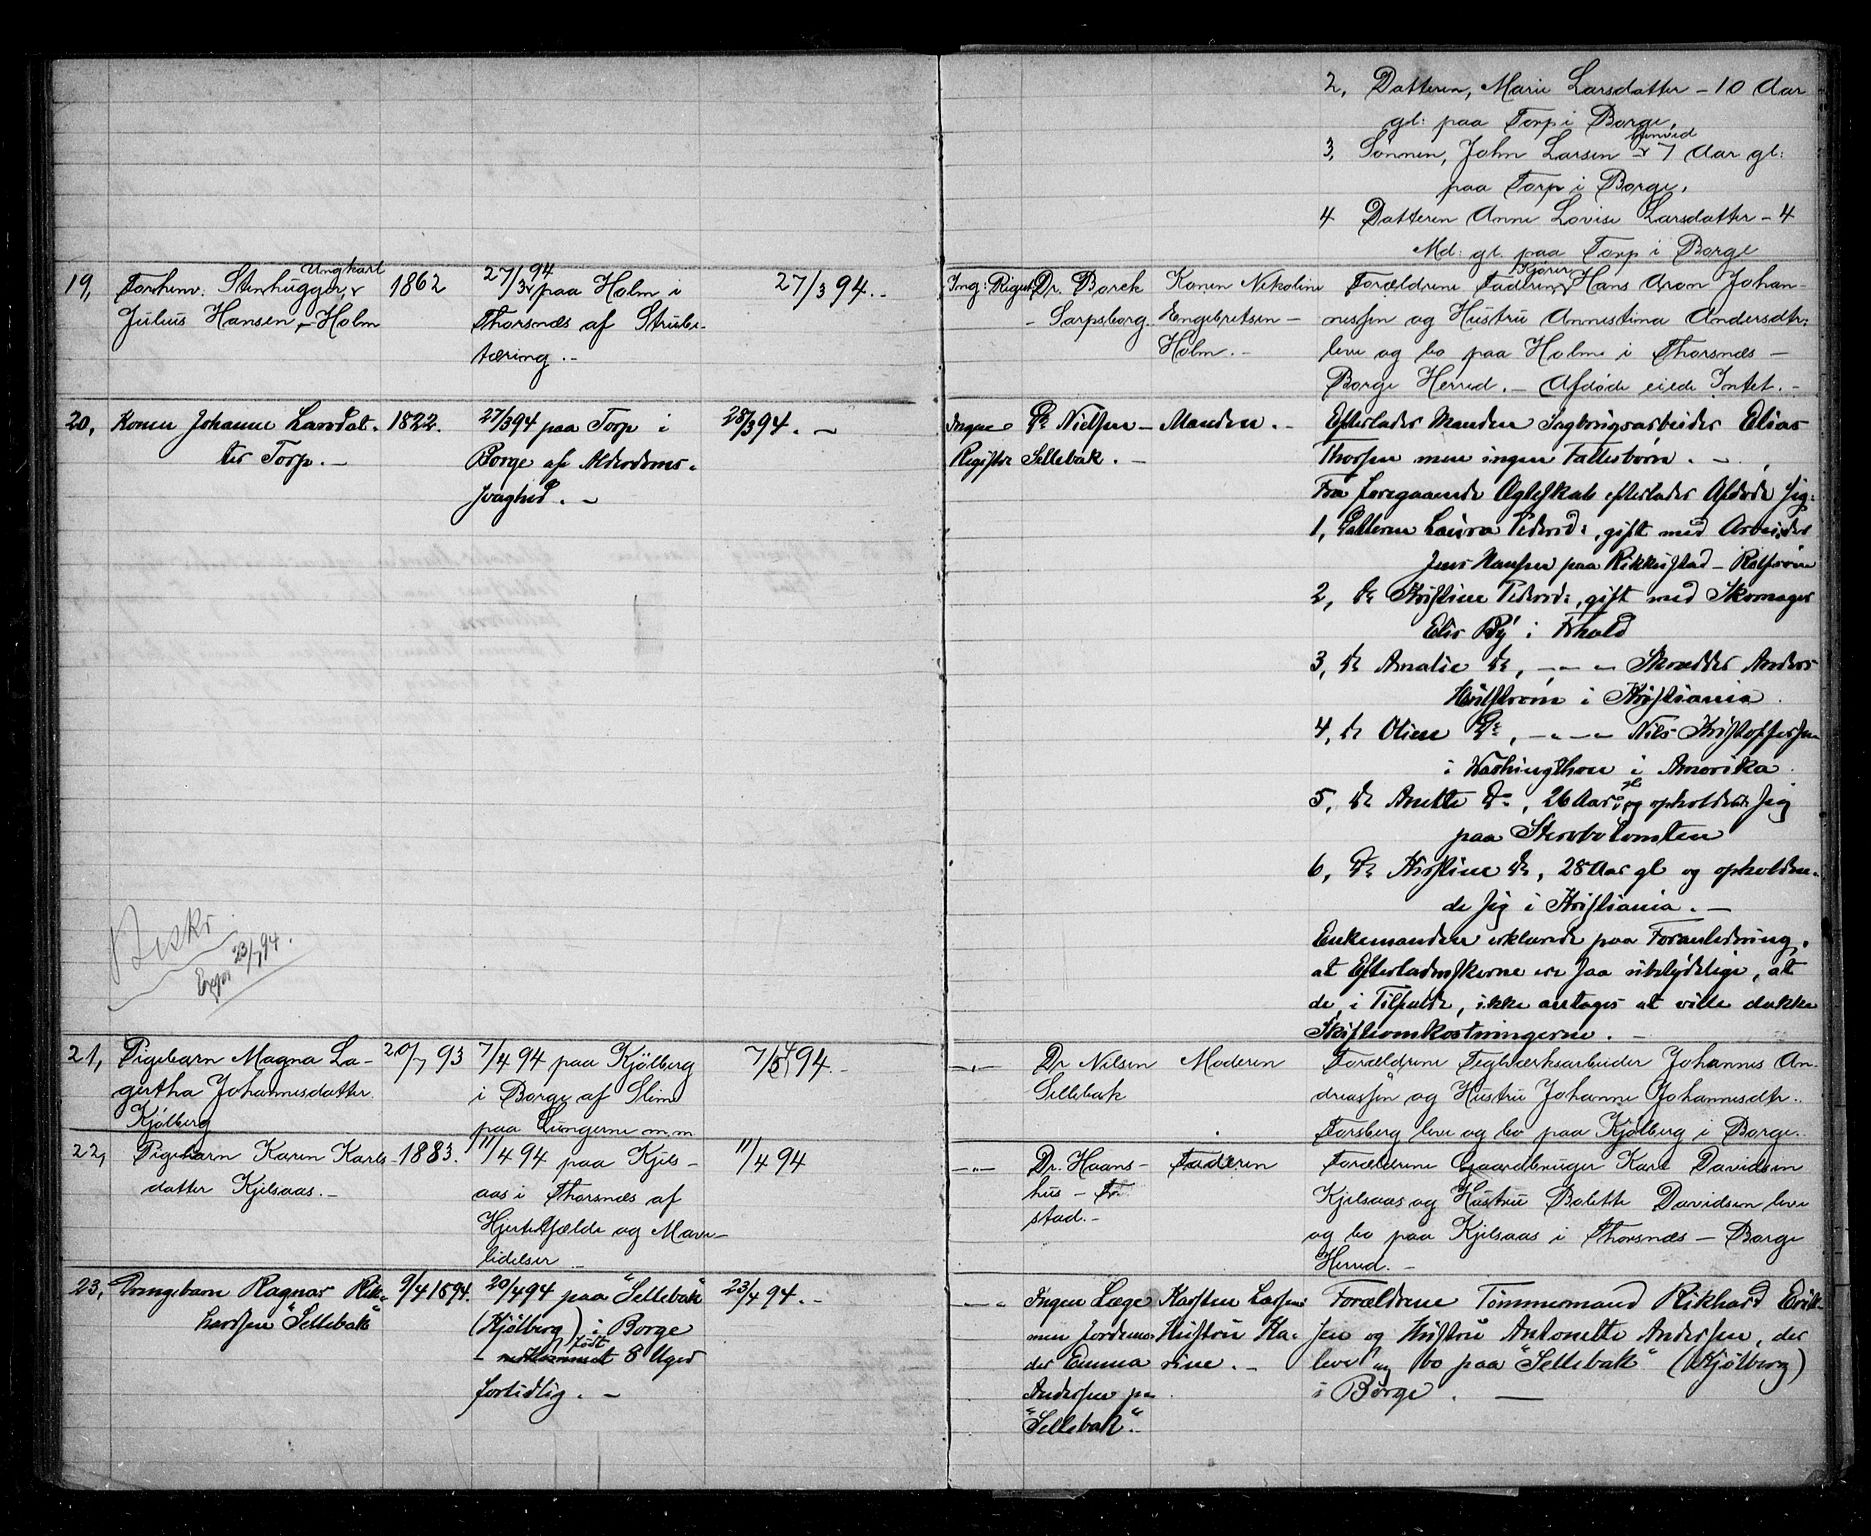 2, Datteren, Marie Larsdatter – 10 Aar
gl: paa Torp i Borge,
3, Sönnen, John Larsen – 7 Aar gl:
paa Torp i Borge,
4 Datteren Anne Lovise Larsdatter – 4
Md: gl. paa Torp i Borge
19, Forhenv. Stenhugger, Ungkarl
Julius Hansen – Holm
1862
27/3 94 paa Holm i
Thorsnæs af Strube-
tæring. –
27/3 94. –
Ing: Regist:
Dr. Borch
– Sarpsborg.
Konen Nikoline
Engebretsen –
Holm. –
Forældrene Faderen Hans Aron Johan-
nessen og Hustru Annestina Andersdtr:
leve og bo paa Holm i Thorsnæs –
Borge Herred. – Afdøde eiede Intet. –
20, Konen Johanne Larsdat-
ter Torp. –
1822.
27/3 94 paa Torp i
Borge af Alderdoms-
svaghed. –
28/3 94. –
Ingen
Registr
Dr Nielsen –
Sellebak. –
Manden. –
Efterlader Manden Sagbrugsarbeider Elias
Thorsen men ingen Fællesbørn. –
Fra foregaaende Ægteskab efterlader Afdøde sig:
1, Datteren Laura Pedersd:, gift med Arbeider
Jens Hansen paa Rikkestad – Rolfsøen
2, do Kristine Pedersd:, gift med Skomager
Elis By i Fr.hald
3, do Amalie do, –„– Skrædder Anders
i Kristiania.
4, do Oline do, –„– Nils Kristoffersen
i Washingthon i Amerika.
5, do Anette do, 26 Aar gl og opholder sig
paa
6, do Kristine do, 28 Aar gl og opholden-
de sig i Kristiania. –
Enkemanden erklærede paa Foranledning,
at Efterladenskerne er saa ubetydelige, at
de, i Tilfælde, ikke antages at ville dække
Skifteomkostningerne. –
Beskr.
Exp. 23/7 94.
21, Pigebarn Magna La-
gertha Johannesdatter
Kjølberg
20/7 93
7/4 94 paa Kjölberg
i Borge af Slim
paa Lungerne m. m
7/4 94. –
–„–
Dr Nilsen
Sellebak
Moderen
Forældrene Teglværksarbeider Johannes An-
dreassen og Hustru Johanne Johannesdtr.
Torsberg leve og bo paa Kjølberg i Borge.
22, Pigebarn Karen Karls-
datter Kjelsaas. –
1883.
11/4 94 paa Kjels-
aas i Thorsnæs af
Hjertefeil og Mave-
lidelser –
11/4 94
–„–
Dr. Haans-
hus – Fr.
stad. –
Faderen
Forældrene Gaardbruger Karl Davidsen
Kjelsaas og Hustru Bolette Davidsen leve
og bo paa Kjelsaas i Thorsnæs – Borge
Herred. –
23, Drengebarn Ragnar Rik-
hardsen "Sellebak"
9/4 1894.
20/4 94 paa "Sellebak"
(Kjølberg) i Borge
– født 8 Uger
fortidlig. –
23/4 94. –
–„–
Ingen Læge
men Jordemo-
der Emma
Andersen paa
"Sellebak".
Karsten Larsens
Hustru Ka-
rine. –
Forældrene Tømmermand Rikhard Erik-
sen og Hustru Antonette Andersen, der
leve og bo paa "Sellebak" (Kjølberg)
i Borge. –